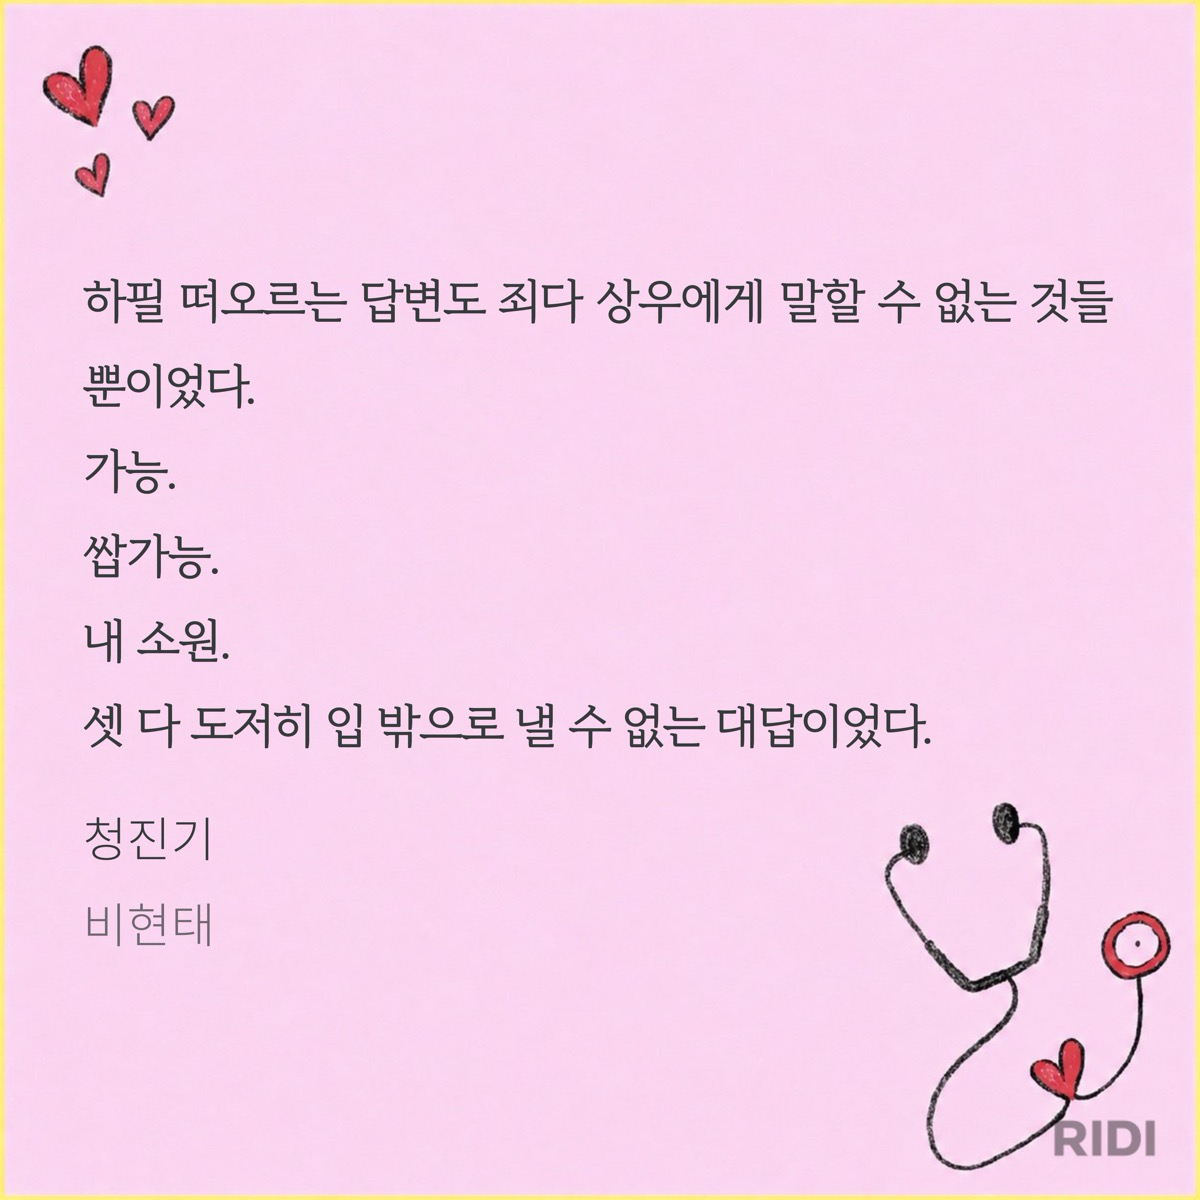 하필 떠오르는 답변도 죄다 상우에게 말할 수 없는 것들
뿐이었다.
가능.
쌉가능.
내 소원.
셋 다 도저히 입 밖으로 낼 수 없는 대답이었다.
청진기
비현태
RIDI